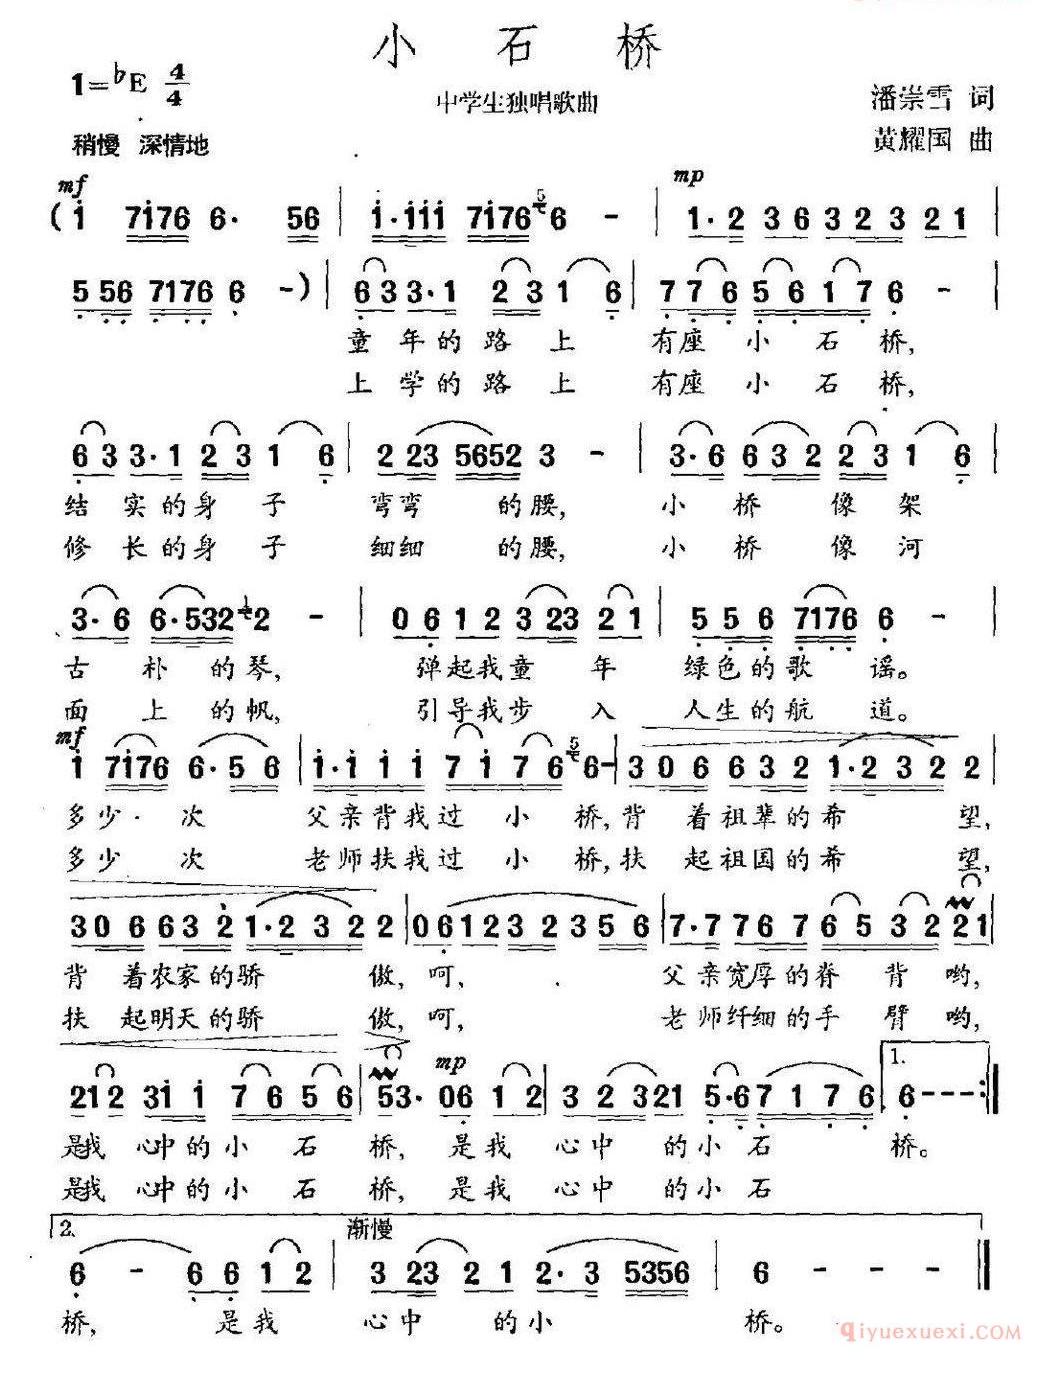 小石桥
1=♭E 4/4
中学生独唱歌曲
潘崇雪 词
稍慢 深情地
黄耀国 曲
mf
mp
( 1 7176 6· 56 | 1·111 7176 5 6 - | 1·2 36 32 32 1 |
5 56 7176 6 -) | 63 3·1 23 1 6 | 7 76 56 17 6 - |
童年的路上 有座小石桥,
上学的路上 有座小石桥,
63 3·1 23 1 6 | 2 23 5652 3 - | 3·6 632 23 1 6 |
结实的身子 弯弯的腰, 小桥像架
修长的身子 细细的腰, 小桥像河
3·6 6·532 1 2 - | 06 12 3 23 21 | 5 56 7176 6 - |
古朴的琴, 弹起我童年 绿色的歌谣。
面上的帆, 引导我步入 人生的航道。
mf
1 7176 6·56 | 1·1 1 1 7 1 7 6 5 6- | 306 632 1·232 2 |
多少·次 父亲背我过小桥,背 着祖辈的希望,
多少次 老师扶我过小桥,扶 起祖国的希望,
306 632 1·232 2 | 06123 2356 | 7·7 76 7 65 32 21 |
背着农家的骄傲,呵, 父亲宽厚的脊背哟,
扶起明天的骄傲,呵, 老师纤细的手臂哟,
mp
1.
212 311 76 56 | 53· 06 12 | 3 2321 5·6 7176 | 6--- :|
是我心中的小石桥, 是我心中的小石桥。
是我心中的小石桥, 是我心中的小石
2.
渐慢
6 - 66 12 | 3 23 21 2·3 5356 | 6 - - - ‖
桥, 是我心中的小桥。
qiyuexuexi.COM